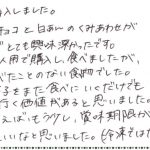 入しました。
チョコと白あんのくみあわせが
としても興味深かったです。
人用で購入し、食べましたが、
べたことのない食物でした。
子をまた食べにいくだけでも
行く価値があると思いました。
えばもう少し、賞味期限が
いいなと思いました。(冷凍では